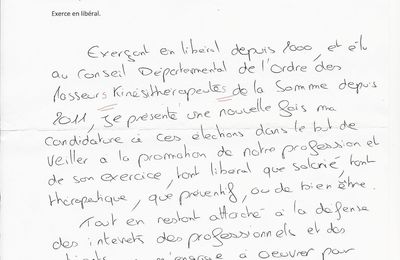 Exerce en libéral.
Exerçant en libéral depuis 2000, et élu
au Conseil Départemental de l'Ordre des
Masseurs Kinésithérapeutes de la Somme depuis
2011, je présente une nouvelle fois ma
candidature à ces élections dans le but de
veiller à la promotion de notre profession et
de son exercice, tant libéral que salarié, tant
thérapeutique, que préventif, ou de bien être.
Tout en restant attaché à la défense
des intérêts des professionnels et des
m'engage à oeuvrer pour